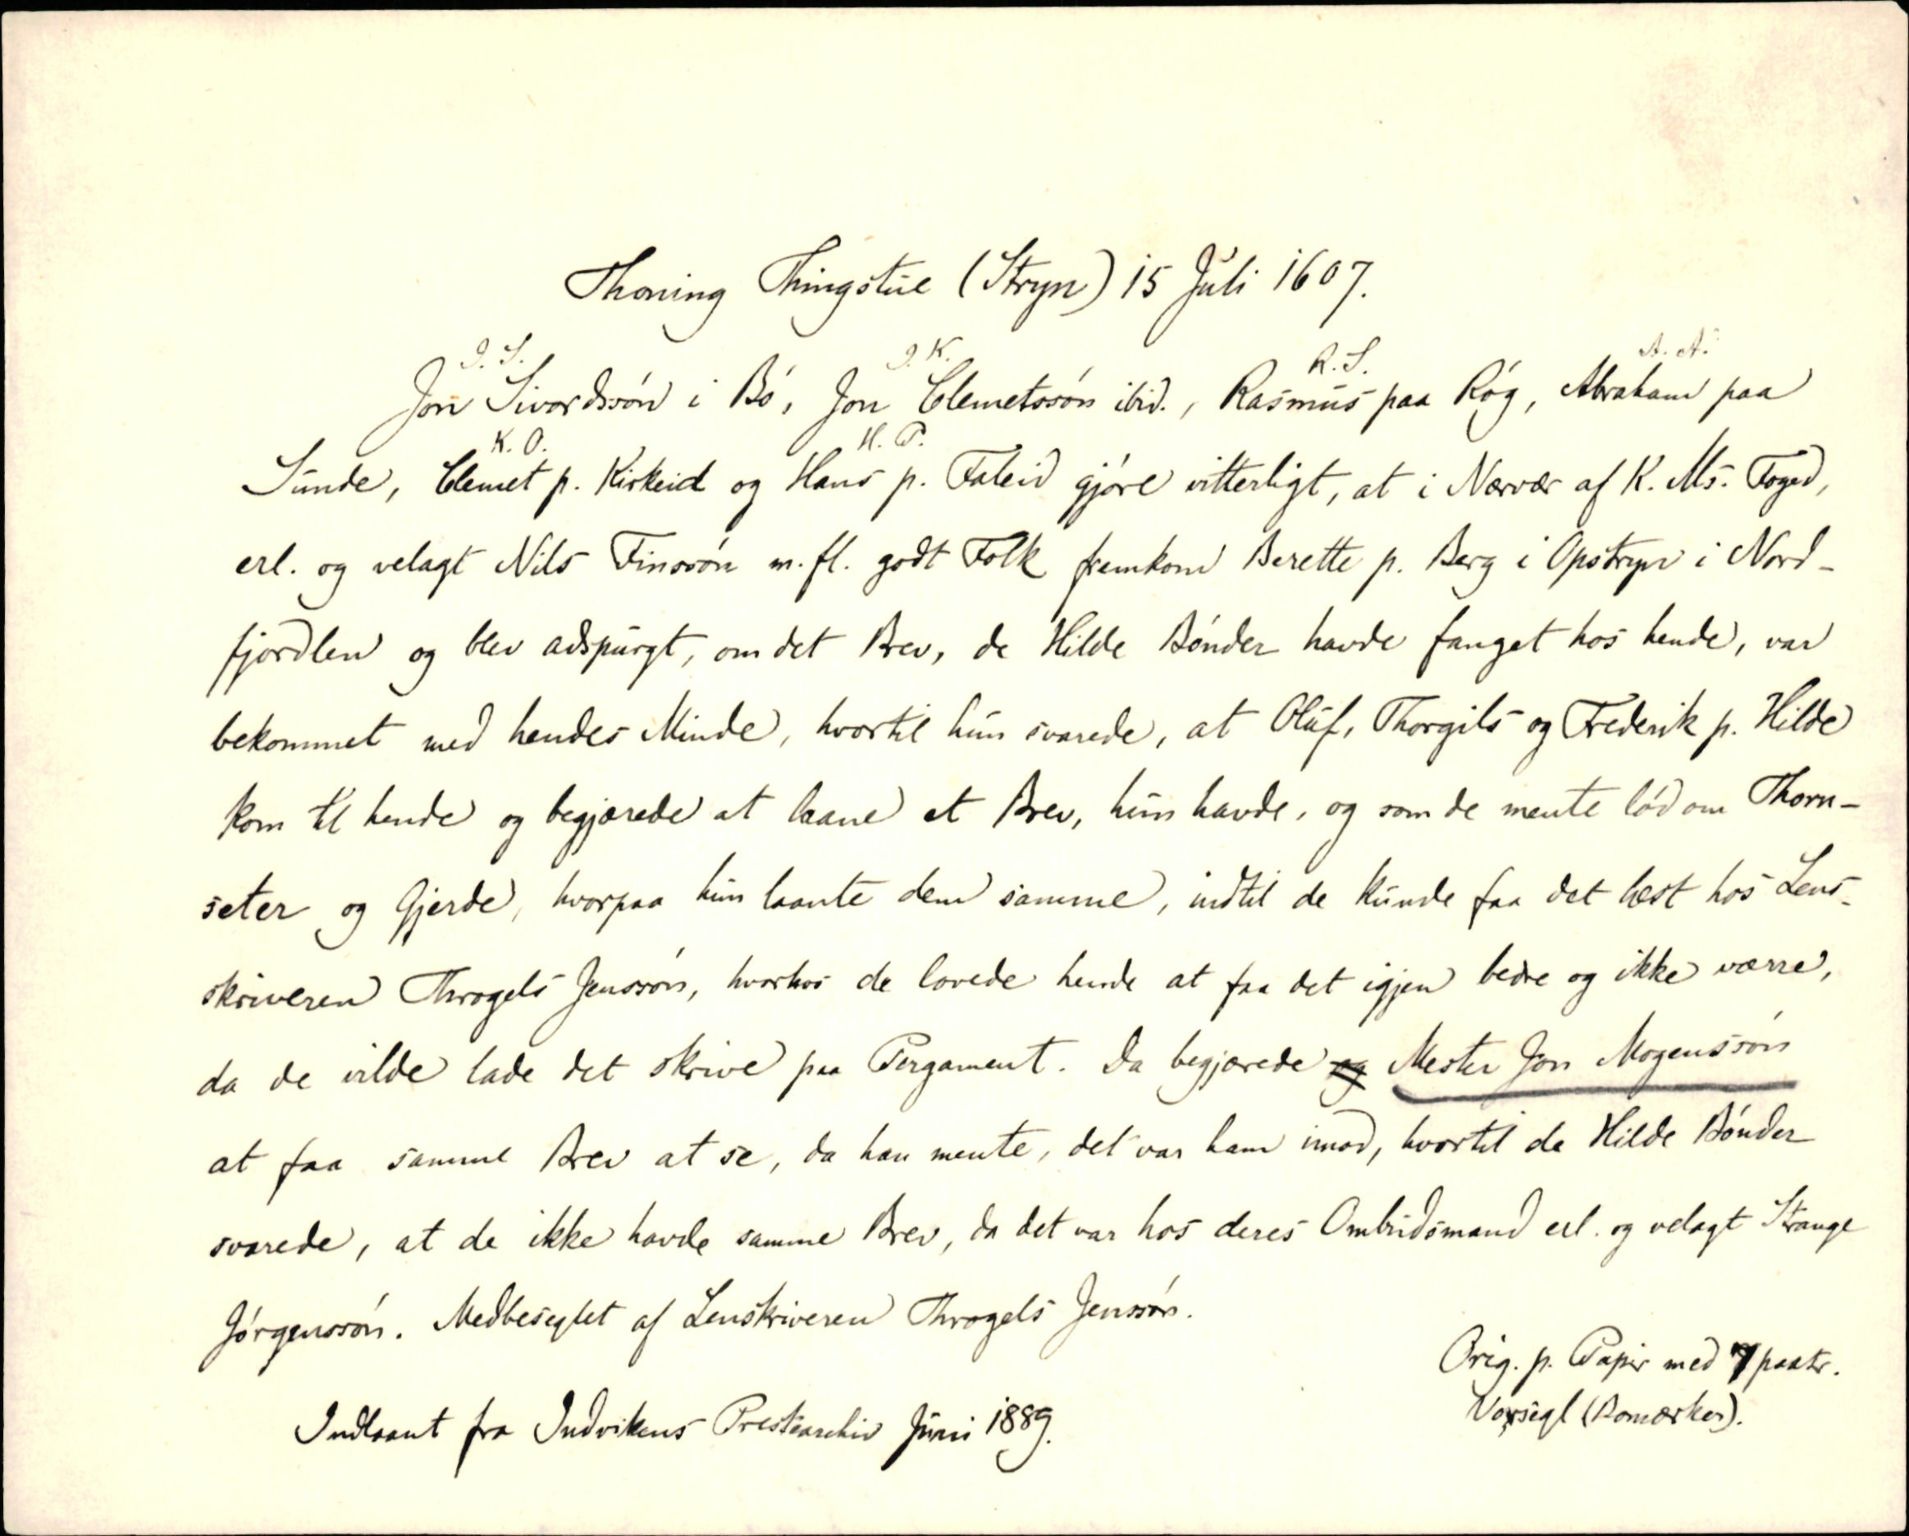 Thoning Thingstue (Stryn) 15 Juli 1607.
J. S. J. K. R. S. A. A.
Jon Sivordssón i Bó, Jon Clemetssón ibid., Rasmus paa Róg, Abraham paa
K. O. H. P.
Sunde, Clemet p. Kirkeid og Hans p. Faleid gjóre vitterligt, at i Nærvær af K. Ms. Foged,
erl. og velagt Nils Finssón m. fl. godt Folk fremkom Berette p. Berg i Opstryn i Nord-
fjordlen og blev adspurgt, om det Brev, de Hilde Bónder havde fanget hos hende, var
bekommet med hendes Minde, hvortil hun svarede, at Oluf, Thorgils og Frederik p. Hilde
kom til hende og begjærede at laane et Brev, hun havde, og som de mente lód om Thorn-
seter og Gjerde, hvorpaa hun laante dem samme, indtil de kunde faa det læst hos Lens-
skriveren Throgels Jenssón, hvorhos de lovede hende at faa det igjen bedre og ikke værre,
da de vilde lade det skrive paa Pergament. Da begjærede og Mester Jon Mogenssón
at faa samme Brev at se, da han mente, det var ham imod, hvortil de Hilde Bónder
svarede, at de ikke havde samme Brev, da det var hos deres Ombudsmand erl. og velagt Strange
Jórgenssón. Medbeseglet af Lenskriveren Throgels Jenssón.
Orig. p. Papir med 7 paatr.
Voxsegl (Bomærker).
Indlaant fra Indvikens Prestearchiv Juni 1889.